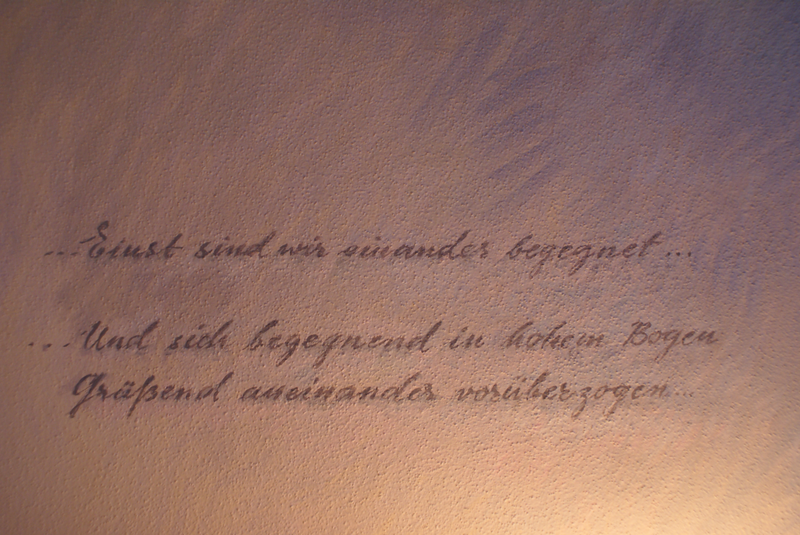 ...Einst sind wir einander begegnet...
...Und sich begegnend in hohem Bogen
Grüßend aneinander vorüberzogen...